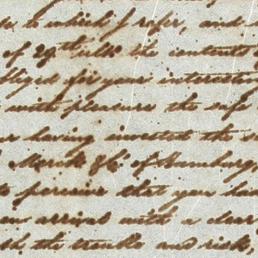 to which I refer, and
of 29th ulto the contents
obliged for your interesting
with pleasure the safe
having invested the
Merck & Co. of Hamburg,
to perceive that you have
arrival with a clear
the trouble and risk,